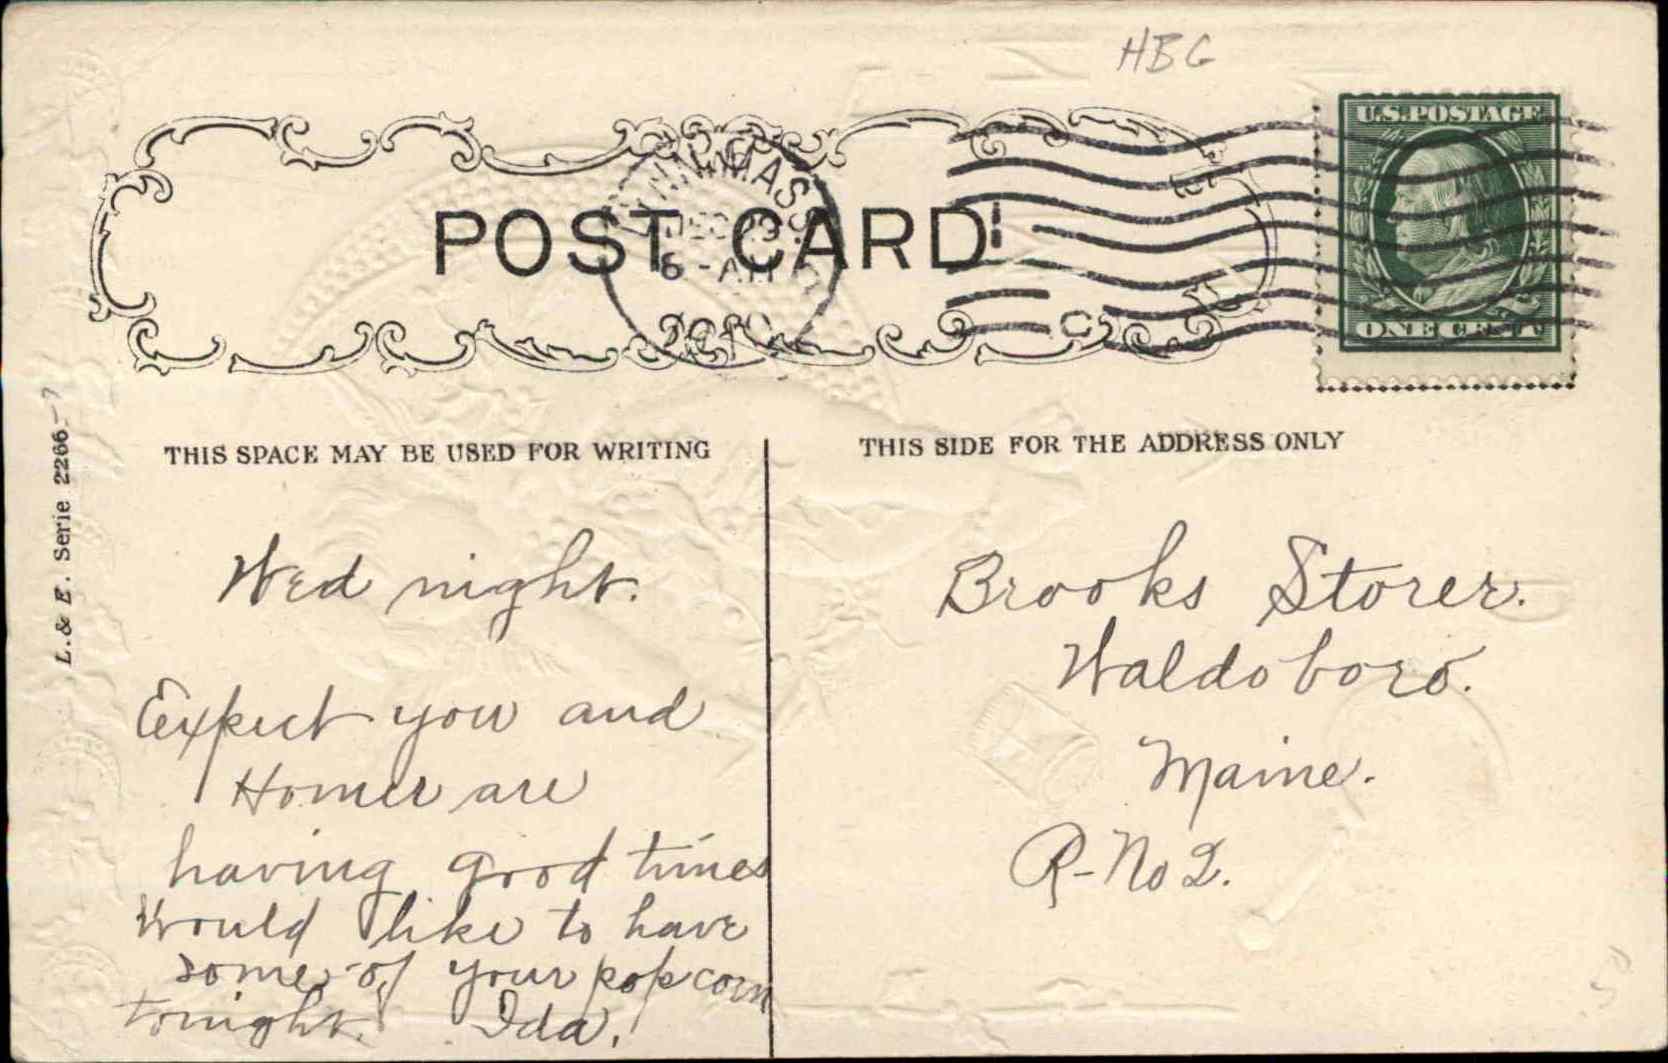 HBG
U.S.POSTAGE
ONE CENT
MASS
6-AM
C
POST CARD
THIS SPACE MAY BE USED FOR WRITING
THIS SIDE FOR THE ADDRESS ONLY
L. & E. Serie 2266
Wed night.
Expect you and
Homer are
having good times
Would like to have
some of your popcorn
tonight. Ida.
Brooks Storer.
Waldoboro.
Maine.
R-No 2.